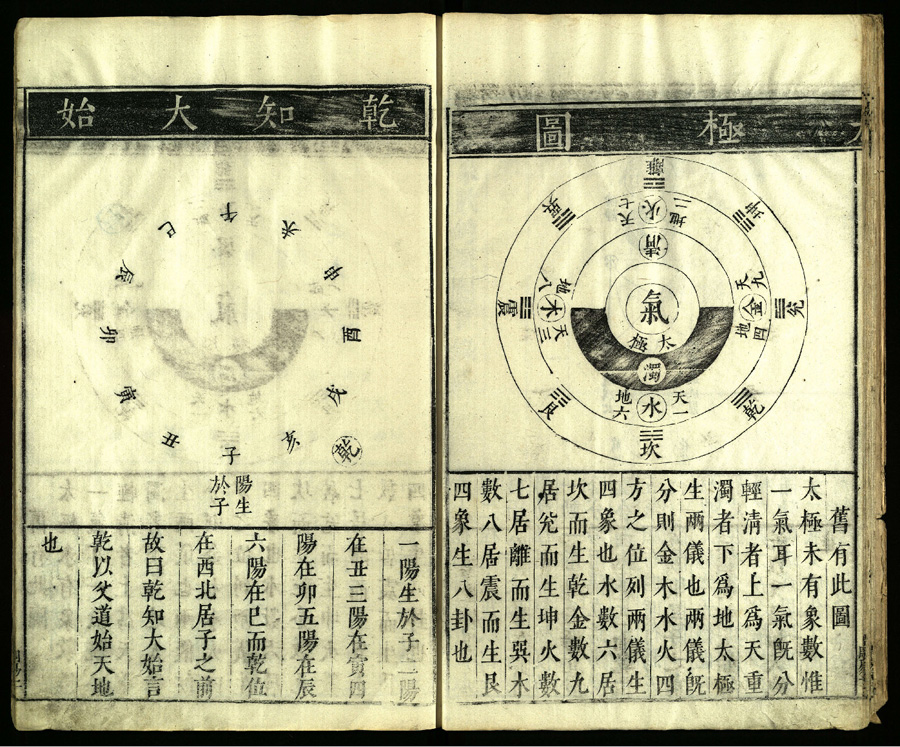 太極圖
離
坤
兌
乾
坎
艮
震
巽
火
地二
天七
金
天九
地四
水
天一
地六
木
天三
地八
清
氣
太極
濁
舊有此圖
太極未有象數惟
一氣耳一氣旣分
輕清者上爲天重
濁者下爲地太極
生兩儀也兩儀旣
分則金木水火四
方之位列兩儀生
四象也水數六居
坎而生乾金數九
居兌而生坤火數
七居離而生巽木
數八居震而生艮
四象生八卦也
乾知大始
午
未
申
酉
戌
乾
亥
子
丑
寅
卯
辰
巳
陽生
於子
一陽生於子二陽
在丑三陽在寅四
陽在卯五陽在辰
六陽在巳而乾位
在西北居子之前
故曰乾知大始言
乾以父道始天地
也